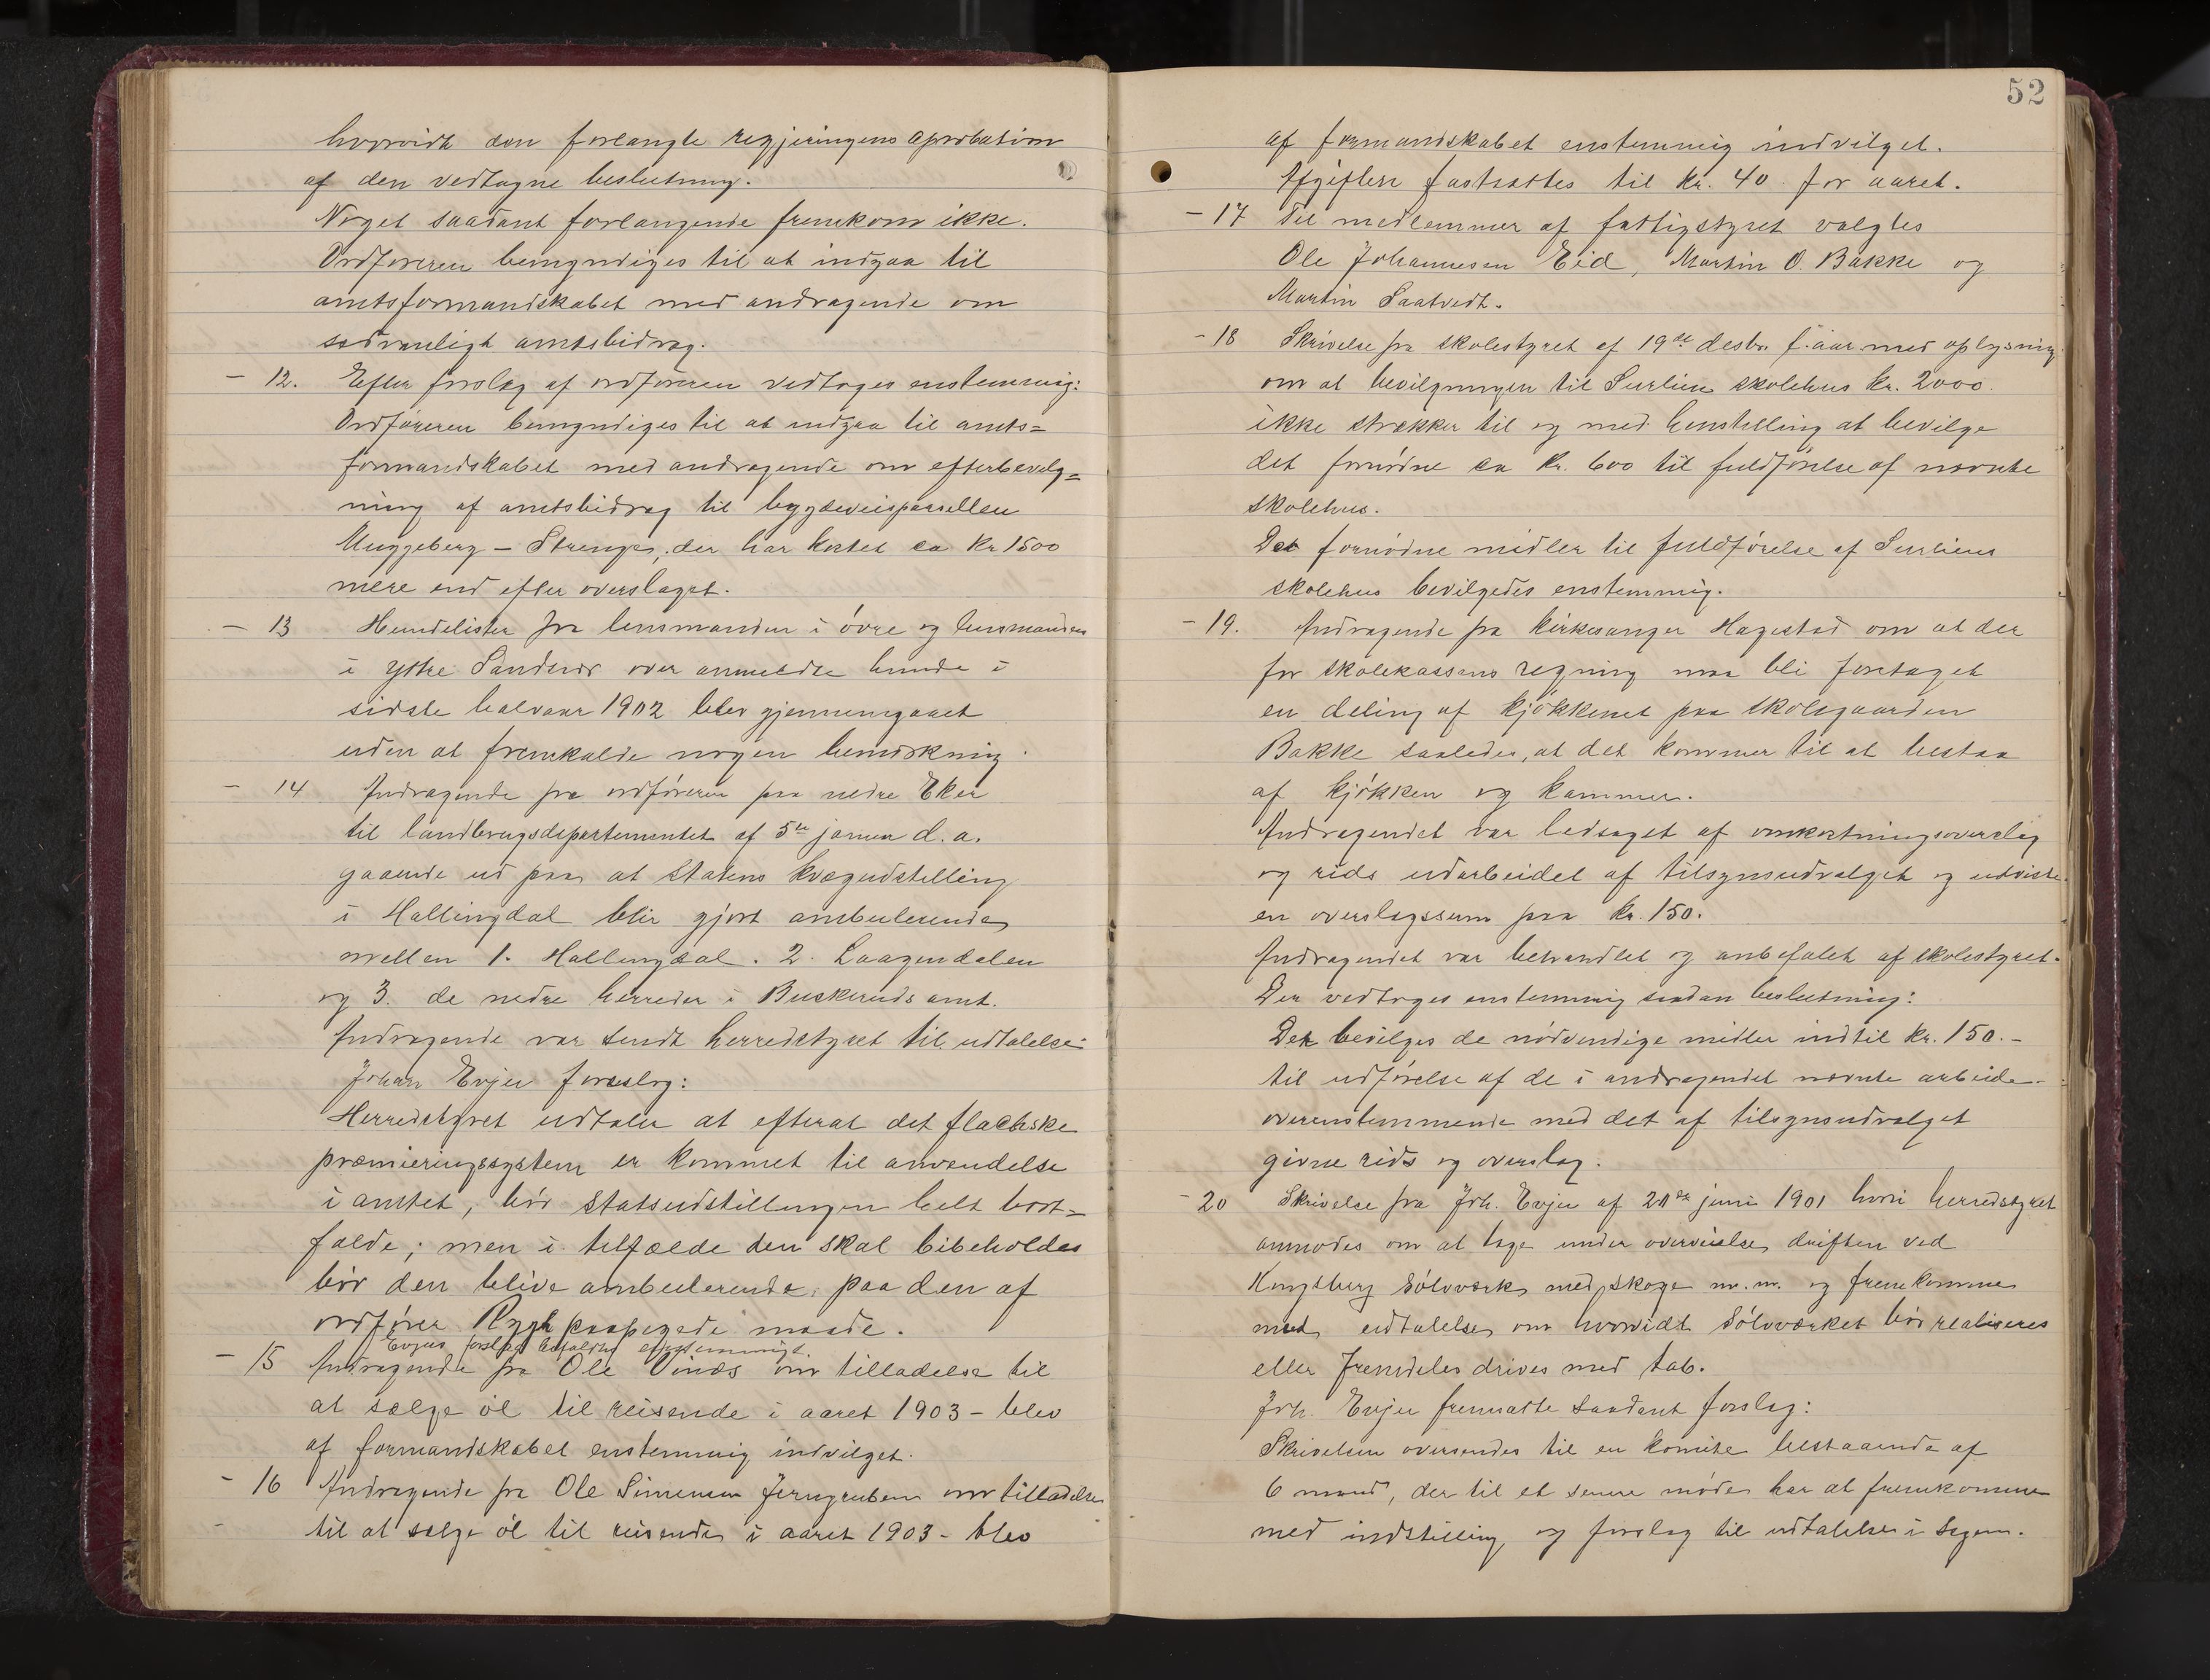 hvorvidt den forlangte regjeringens aprobation
af den vedtagne beslutning.
Noget saadant forlangende fremkom ikke.
Ordføreren bemyndiges til at indgaa til
amtsformandskabet med andragende om
sedvanligt amtsbidrag.
- 12. Efter forslag af ordføreren vedtoges enstemmig:
Ordføreren bemyndiges til at indgaa til amts=
formandskabet med andragende om efterbevilg=
ning af amtsbidrag til bygdeveisparsellen
Muggeberg - Strenge, der har kostet ca kr 1500
mere end efter overslaget.
- 13 Hundelister fra lensmanden i øvre og lensmanden
i ytre Sandsvær over anmeldte hunde i
sidste halvaar 1902 blev gjennemgaaet
uden at fremkalde nogen bemærkning.
- 14 Andragende fra ordføreren paa nedre Eker
til landbrugsdepartementet af 5te januar d.a.
gaaende ud paa at statens kvægudstilling
i Hallingdal blir gjort ambulerende
mellem 1. Hallingdal. 2. Laagendalen
og 3. de nedre herreder i Buskeruds amt.
Andragende var sendt herredstyret til udtalelse.
Johan Evju foreslog:
Herredstyret udtaler at efterat det flachske
præmieringssystem er kommet til anvendelse
i amtet, bør statsudstillingen helt bort=
falde; men i tilfælde den skal bibeholdes
bør den blive ambulerende paa den af
ordfører Rygh paapegede maade.
Evjus forslag bifaldtes enstemmigt.
- 15 Andragende fra Ole Vinæs om tilladelse til
at sælge øl til reisende i aaret 1903 - blev
af formandskabet enstemmig indvilget.
- 16 Andragende fra Ole Simensen Jerngruben om tilladelse
til at sælge øl til reisende i aaret 1903 - blev
52
af formandskabet enstemmig indvilget.
Afgiften fastsattes til kr. 40 for aaret.
- 17 Til medlemmer af fattigstyret valgtes
Ole Johannesen Eid, Martin O. Bakke og
Martin Saatvedt.
- 18 Skrivelse fra skolestyret af 19de desbr. f. aar med oplysning
om at bevilgningen til Surlien skolehus kr. 2000.
ikke strækker til og med henstilling at bevilge
det fornødne ca kr. 600 til fuldførelse af nævnte
skolehus.
Det fornødne midler til fuldførelse af Surliens
skolehus bevilgedes enstemmig.
- 19. Andragende fra kirkesanger Hagestad om at der
for skolekassens regning maa bli foretaget
en deling af kjøkkenet paa skolegaarden
Bakke saaledes, at det kommer til at bestaa
af kjøkken og kammer.
Andragendet var ledsaget af omkostningsoverslag
og rids udarbeidet af tilsynsudvalget og udviste
en overslagssum paa kr. 150.
Andragendet var behandlet og anbefalet af skolestyret.
Der vedtoges enstemmig saadan beslutning:
Der bevilges de nødvendige midler indtil kr. 150.-
til udførelse af de i andragendet nævnte arbeide
overenstemmende med det af tilsynsudvalget
givne rids og overslag.
- 20 Skrivelse fra Joh. Evju af 21de juni 1901 hvori herredstyret
anmodes om at tage under overveielse driften ved
Kongsberg sølvværk med skoge m.m. og fremkomme
med udtalelse om hvorvidt sølvværket bør realiseres
eller fremdeles drives med tab.
Joh. Evju fremsatte saadant forslag:
Skrivelsen oversendes til en komite bestaaende af
6 mand, der til et senere møde har at fremkomme
med indstilling og forslag til udtalelse i sagen.